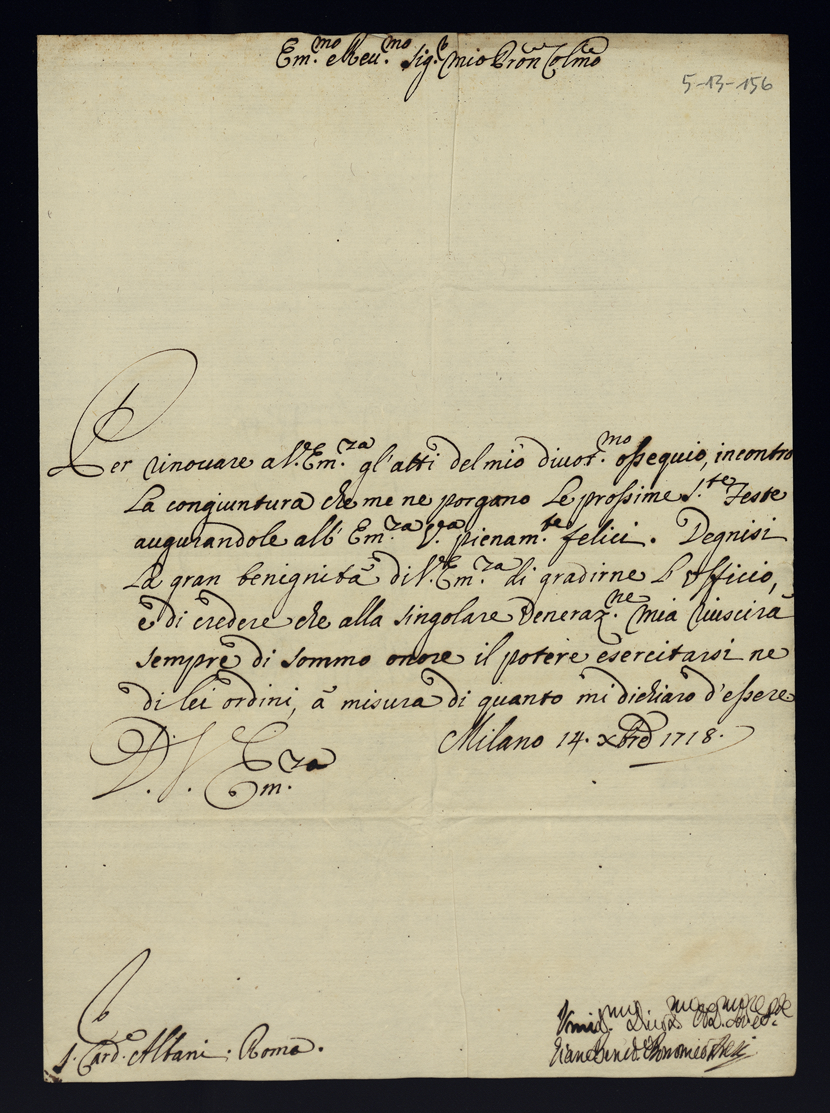 Em.mo e Reu.mo Sig.r mio Pron Colmo
5-13-156
Per rinouare a V. Em.za gl'atti del mio diuot.mo ossequio, incontro
La congiuntura che me ne porgano Le prossime S.te Feste
augurandole all' Em.za V.a pienam.te felici. Degnisi
La gran benignità di V. Em.za di gradirne L'Officio,
è di credere che alla singolare veneraz.ne mia riuscirà
sempre di sommo onore il potere esercitarsi ne
di lei ordini, à misura di quanto mi dichiaro d'essere
D. V. Em.za
Milano 14. xbre 1718.
S. Card. Albani; Roma.
Vmil.mo Diuot.mo